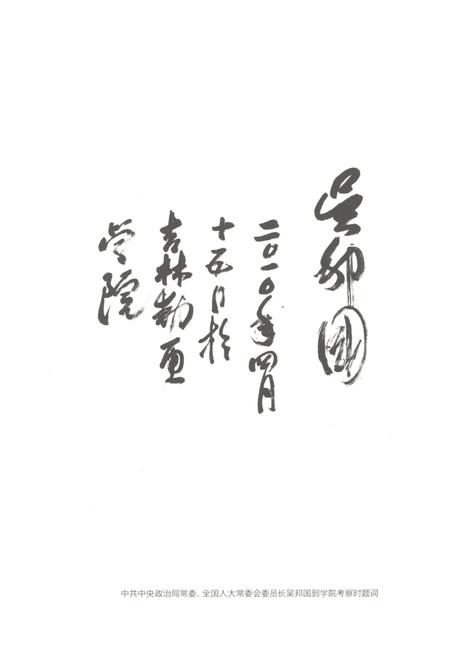 吴邦国
二〇一〇年四月
十五日於
吉林动画
学院
中共中央政治局常委、全国人大常委会委员长吴邦国到学院考察时题词